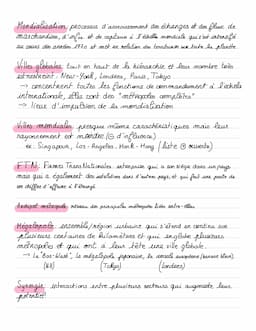 Mondialisation processus d'accroissement des échanges et des flux de
marchandises, d'infos et de capitaux à l'échelle mondiale qui s'est intensifié
au cours des années 1970 et met en relation des territoires sur toute la planète
Villes globales tout en haut de la hiérarchie et leur nombre très
restreint. New-York, Londres, Paris, Tokyo
→ concentrent toutes les fonctions de commandement à l'échelle
internationale, elles sont des "métropoles complètes"
→ lieux d'impulsion de la mondialisation
Villes mondiales presque même caractéristiques mais leur
rayonnement est moindre (d'influence)
ex: Singapour, Los-Angeles, Honk-Hong (liste ouverte)
F.T.N Firmes TransNationales entreprise qui a son siège dans un pays
mais qui a également des filiales dans d'autres pays, et qui fait une partie de
son chiffre d'affaire à l'étranger
réseau de principales métropoles liées entre-elles
Mégalopole ensemble/région urbaine qui s'étend en continu sur
plusieurs centaines de kilomètres et qui englobe plusieurs
métropoles et qui ont à leur tête une ville globale.
→ la "Bos-Wash", la mégalopole japonaise, la dorsale européenne (banane bleue).
(NY) (Tokyo) (Londres)
Synergie interactions entre plusieurs secteurs qui augmente leur
potentiel